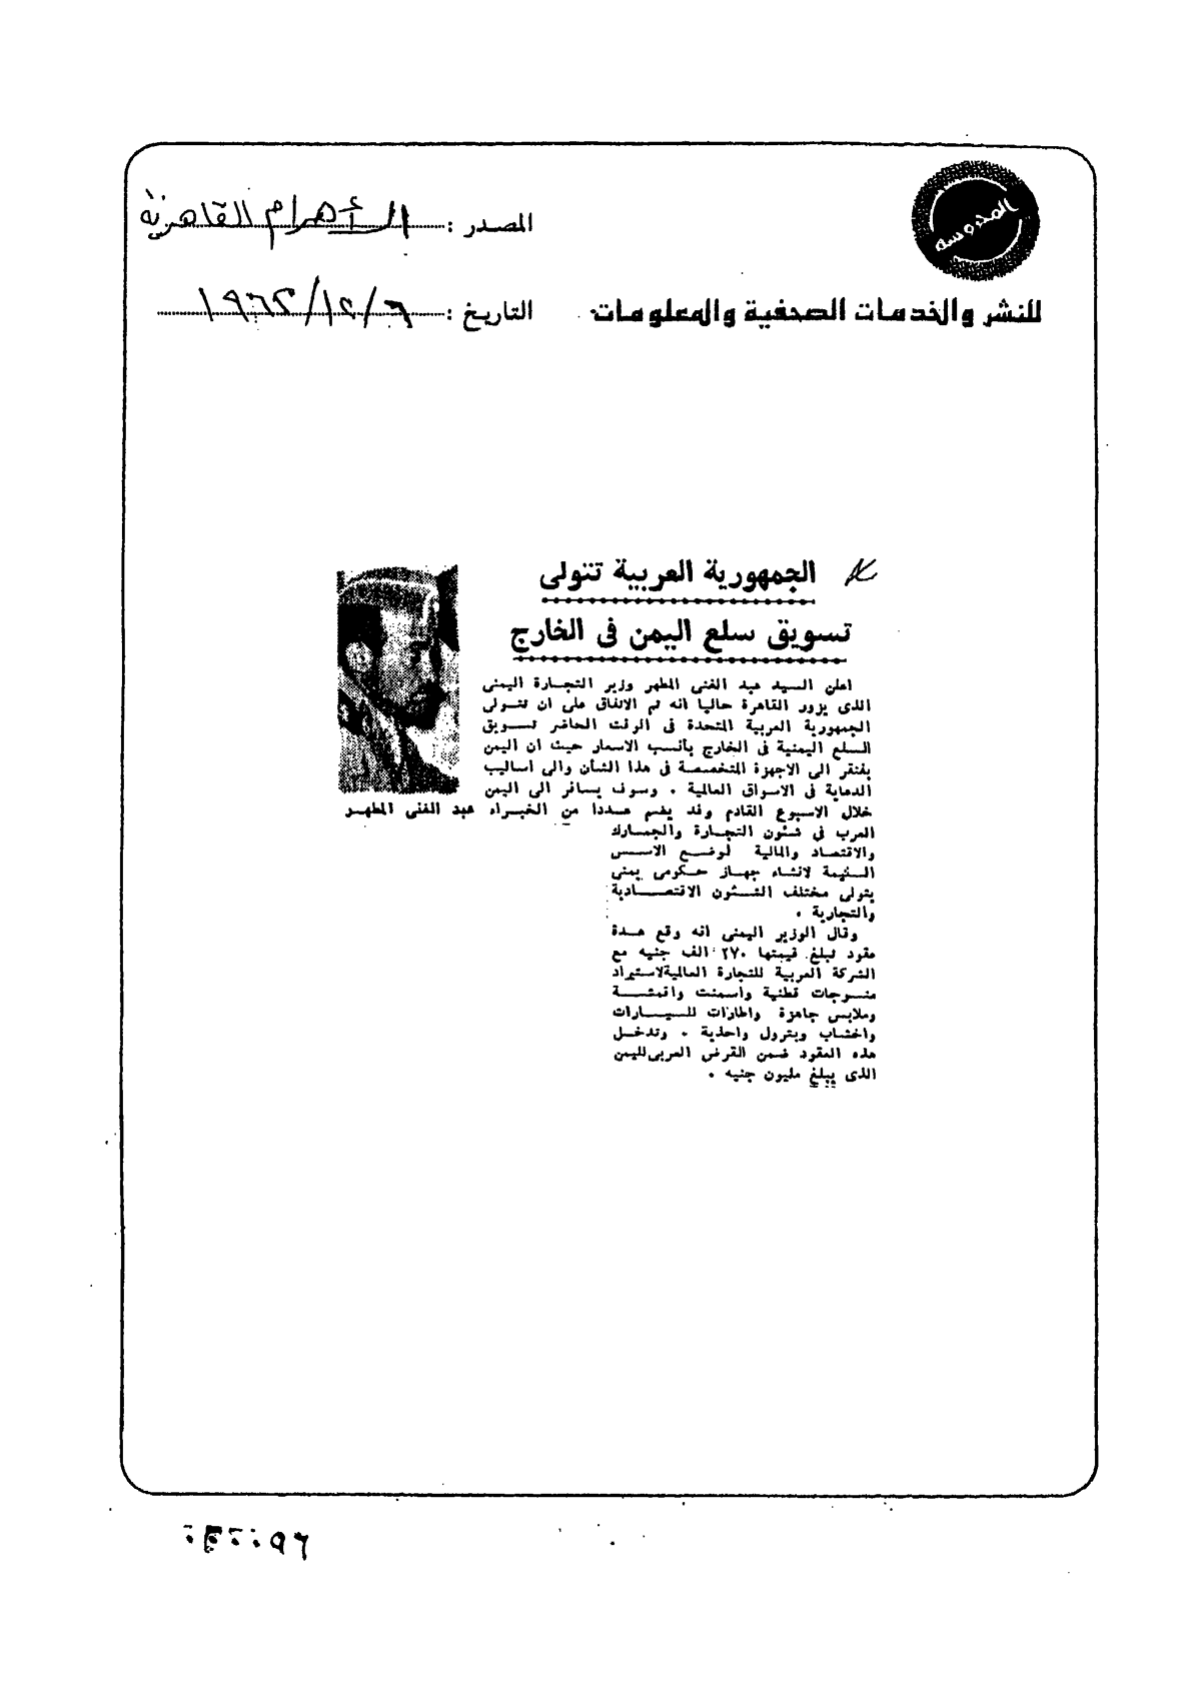 المحروسة
للنشر والخدمات الصحفية والمعلومات
المصدر : الأهرام القاهرية
التاريخ : ٦/١٢/١٩٦٢
الجمهورية العربية تتولى
تسويق سلع اليمن فى الخارج
اعلن السيد عبد الغنى المطهر وزير التجارة اليمنى
الذى يزور القاهرة حاليا انه تم الاتفاق على ان تتولى
الجمهورية العربية المتحدة فى الوقت الحاضر تسويق
السلع اليمنية فى الخارج بأنسب الاسعار حيث ان اليمن
يفتقر الى الاجهزة المتخصصة فى هذا الشأن والى اساليب
الدعاية فى الاسواق العالمية . وسوف يسافر الى اليمن
خلال الاسبوع القادم وفد يضم عددا من الخبراء
عبد الغنى المطهر
العرب فى شئون التجارة والجمارك
والاقتصاد والمالية لوضع الاسس
السليمة لانشاء جهاز حكومى يمنى
يتولى مختلف الشئون الاقتصادية
والتجارية .
وقال الوزير اليمنى انه وقع عدة
عقود تبلغ قيمتها ٢٧٠ الف جنيه مع
الشركة العربية للتجارة العالمية لاستيراد
منسوجات قطنية واسمنت واقمشة
وملابس جاهزة واطارات للسيارات
واخشاب وبترول واحذية . وتدخل
هذه العقود ضمن القرض العربى لليمن
الذى يبلغ مليون جنيه .